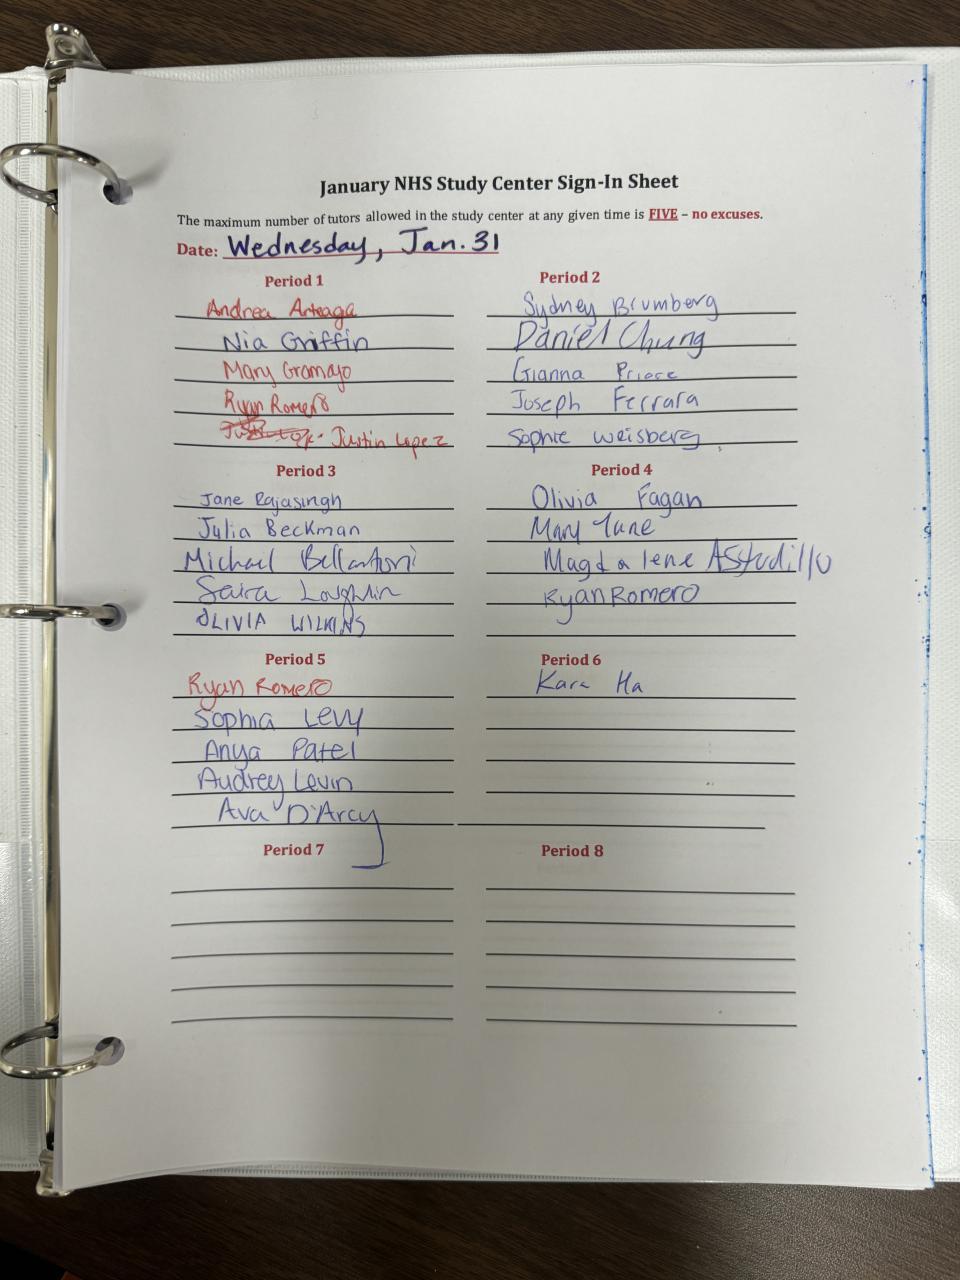 January NHS Study Center Sign-In Sheet
The maximum number of tutors allowed in the study center at any given time is FIVE – no excuses.
Date: Wednesday, Jan. 31
Period 1
Andrea Arteaga
Nia Griffin
Mary Gramajo
Ryan Romero
Justin Lopez
Period 2
Sydney Brumberg
Daniel Chung
Gianna Priore
Joseph Ferrara
Sophie Weisberg
Period 3
Jane Rajasingh
Julia Beckman
Michael Bellantoni
Saira Loughlin
OLIVIA WILKINS
Period 4
Olivia Fagan
Mary
Magdalene Astudillo
Ryan Romero
Period 5
Ryan Romero
Sophia Levy
Anya Patel
Audrey Levin
Ava D'Arcy
Period 6
Kara Ha
Period 7
Period 8